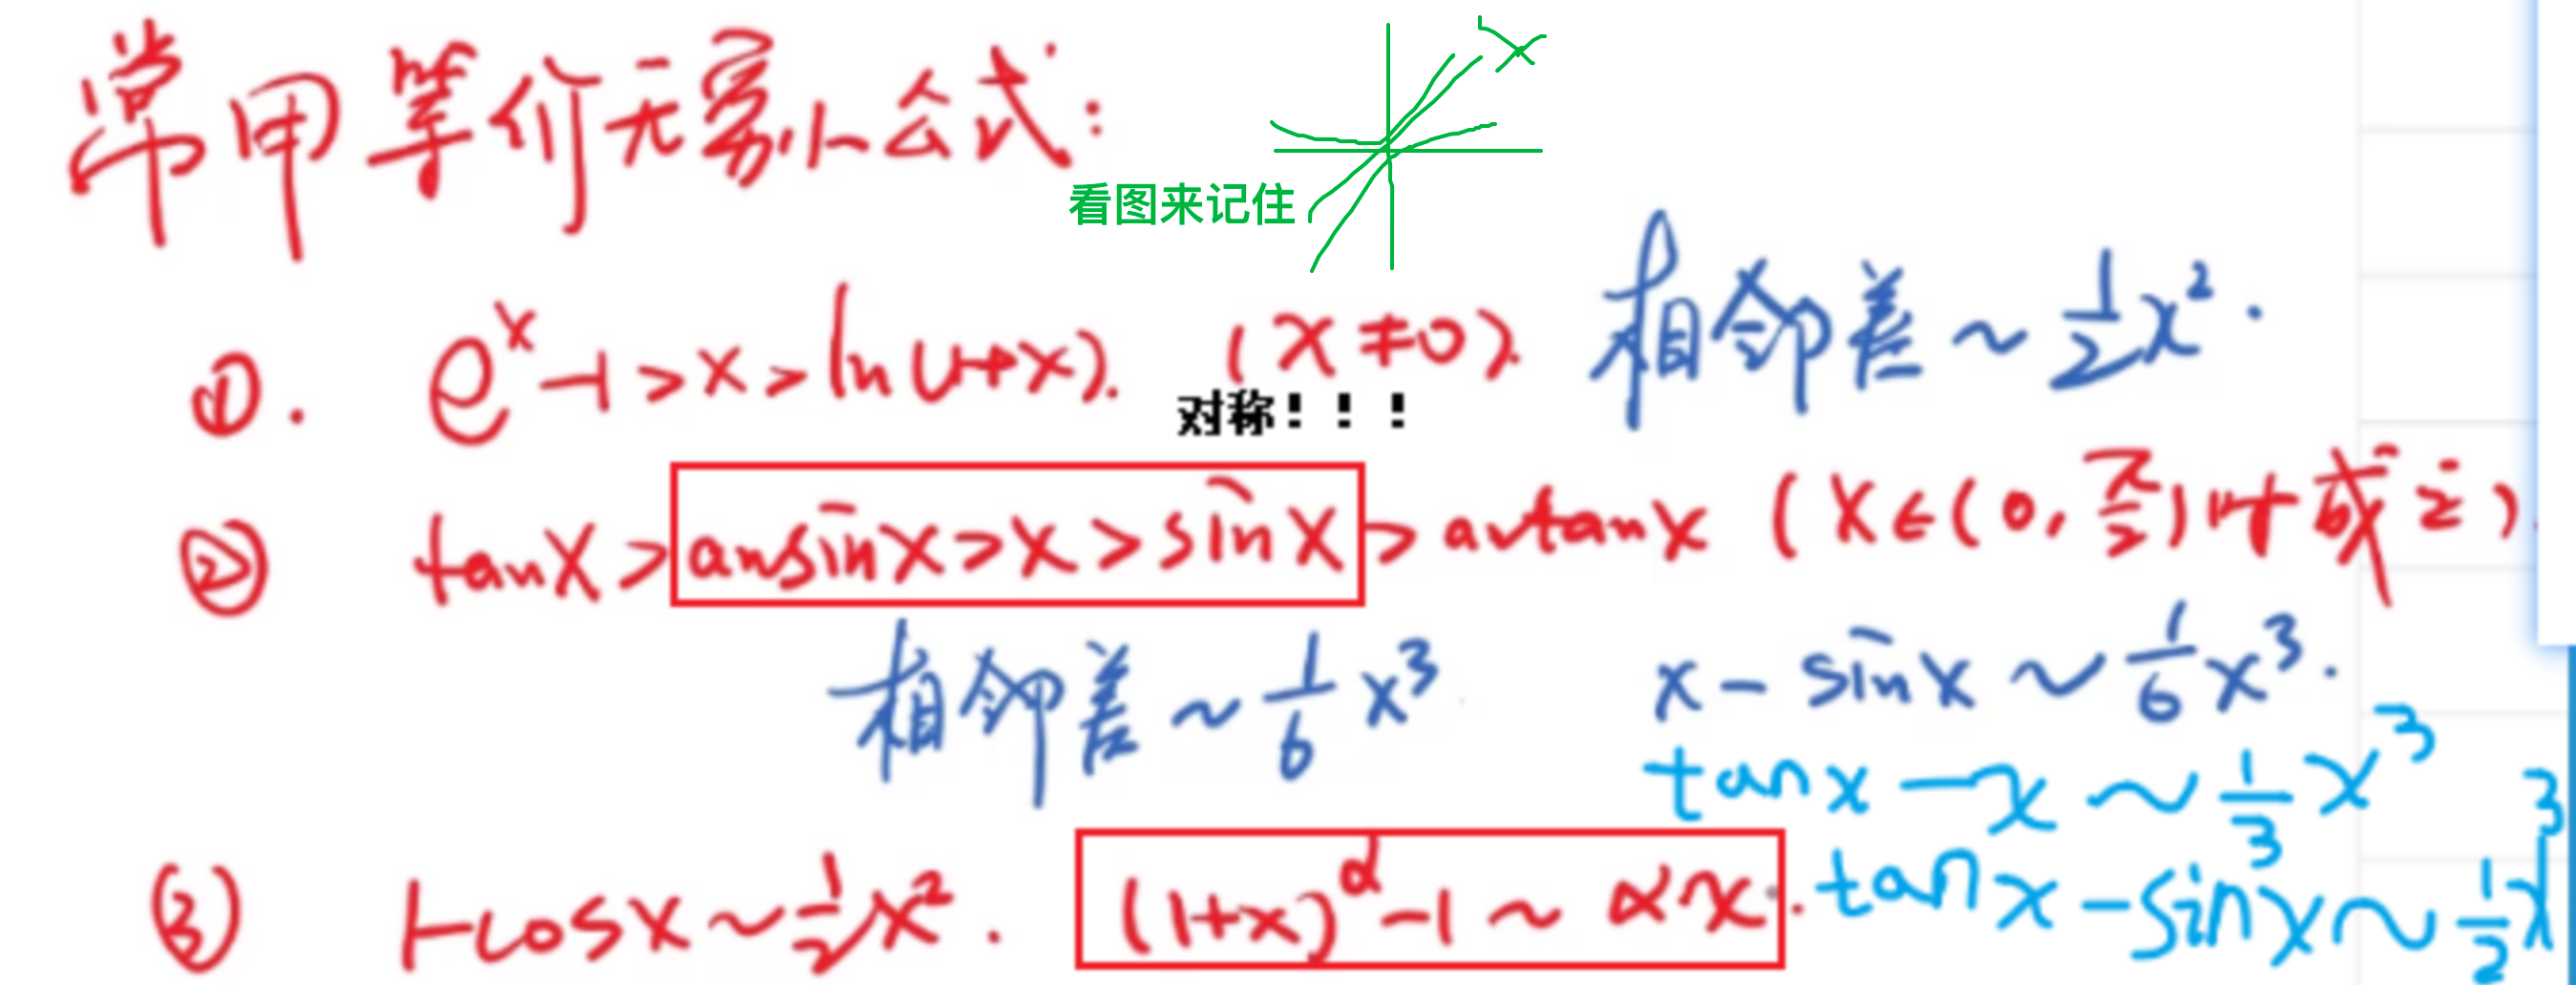 常用等价无穷小公式：
看图来记住
①. eˣ-1 > x > ln(1+x). (x≠0). 相邻差 ~ 1/2 x².
对称！！！
② tanx > arcsinx > x > sinx > arctanx (x∈(0, π/2)时成立).
相邻差 ~ 1/6 x³ x - sinx ~ 1/6 x³.
tanx - x ~ 1/3 x³
③ 1-cosx ~ 1/2 x². (1+x)^α - 1 ~ αx. tanx - sinx ~ 1/2 x³